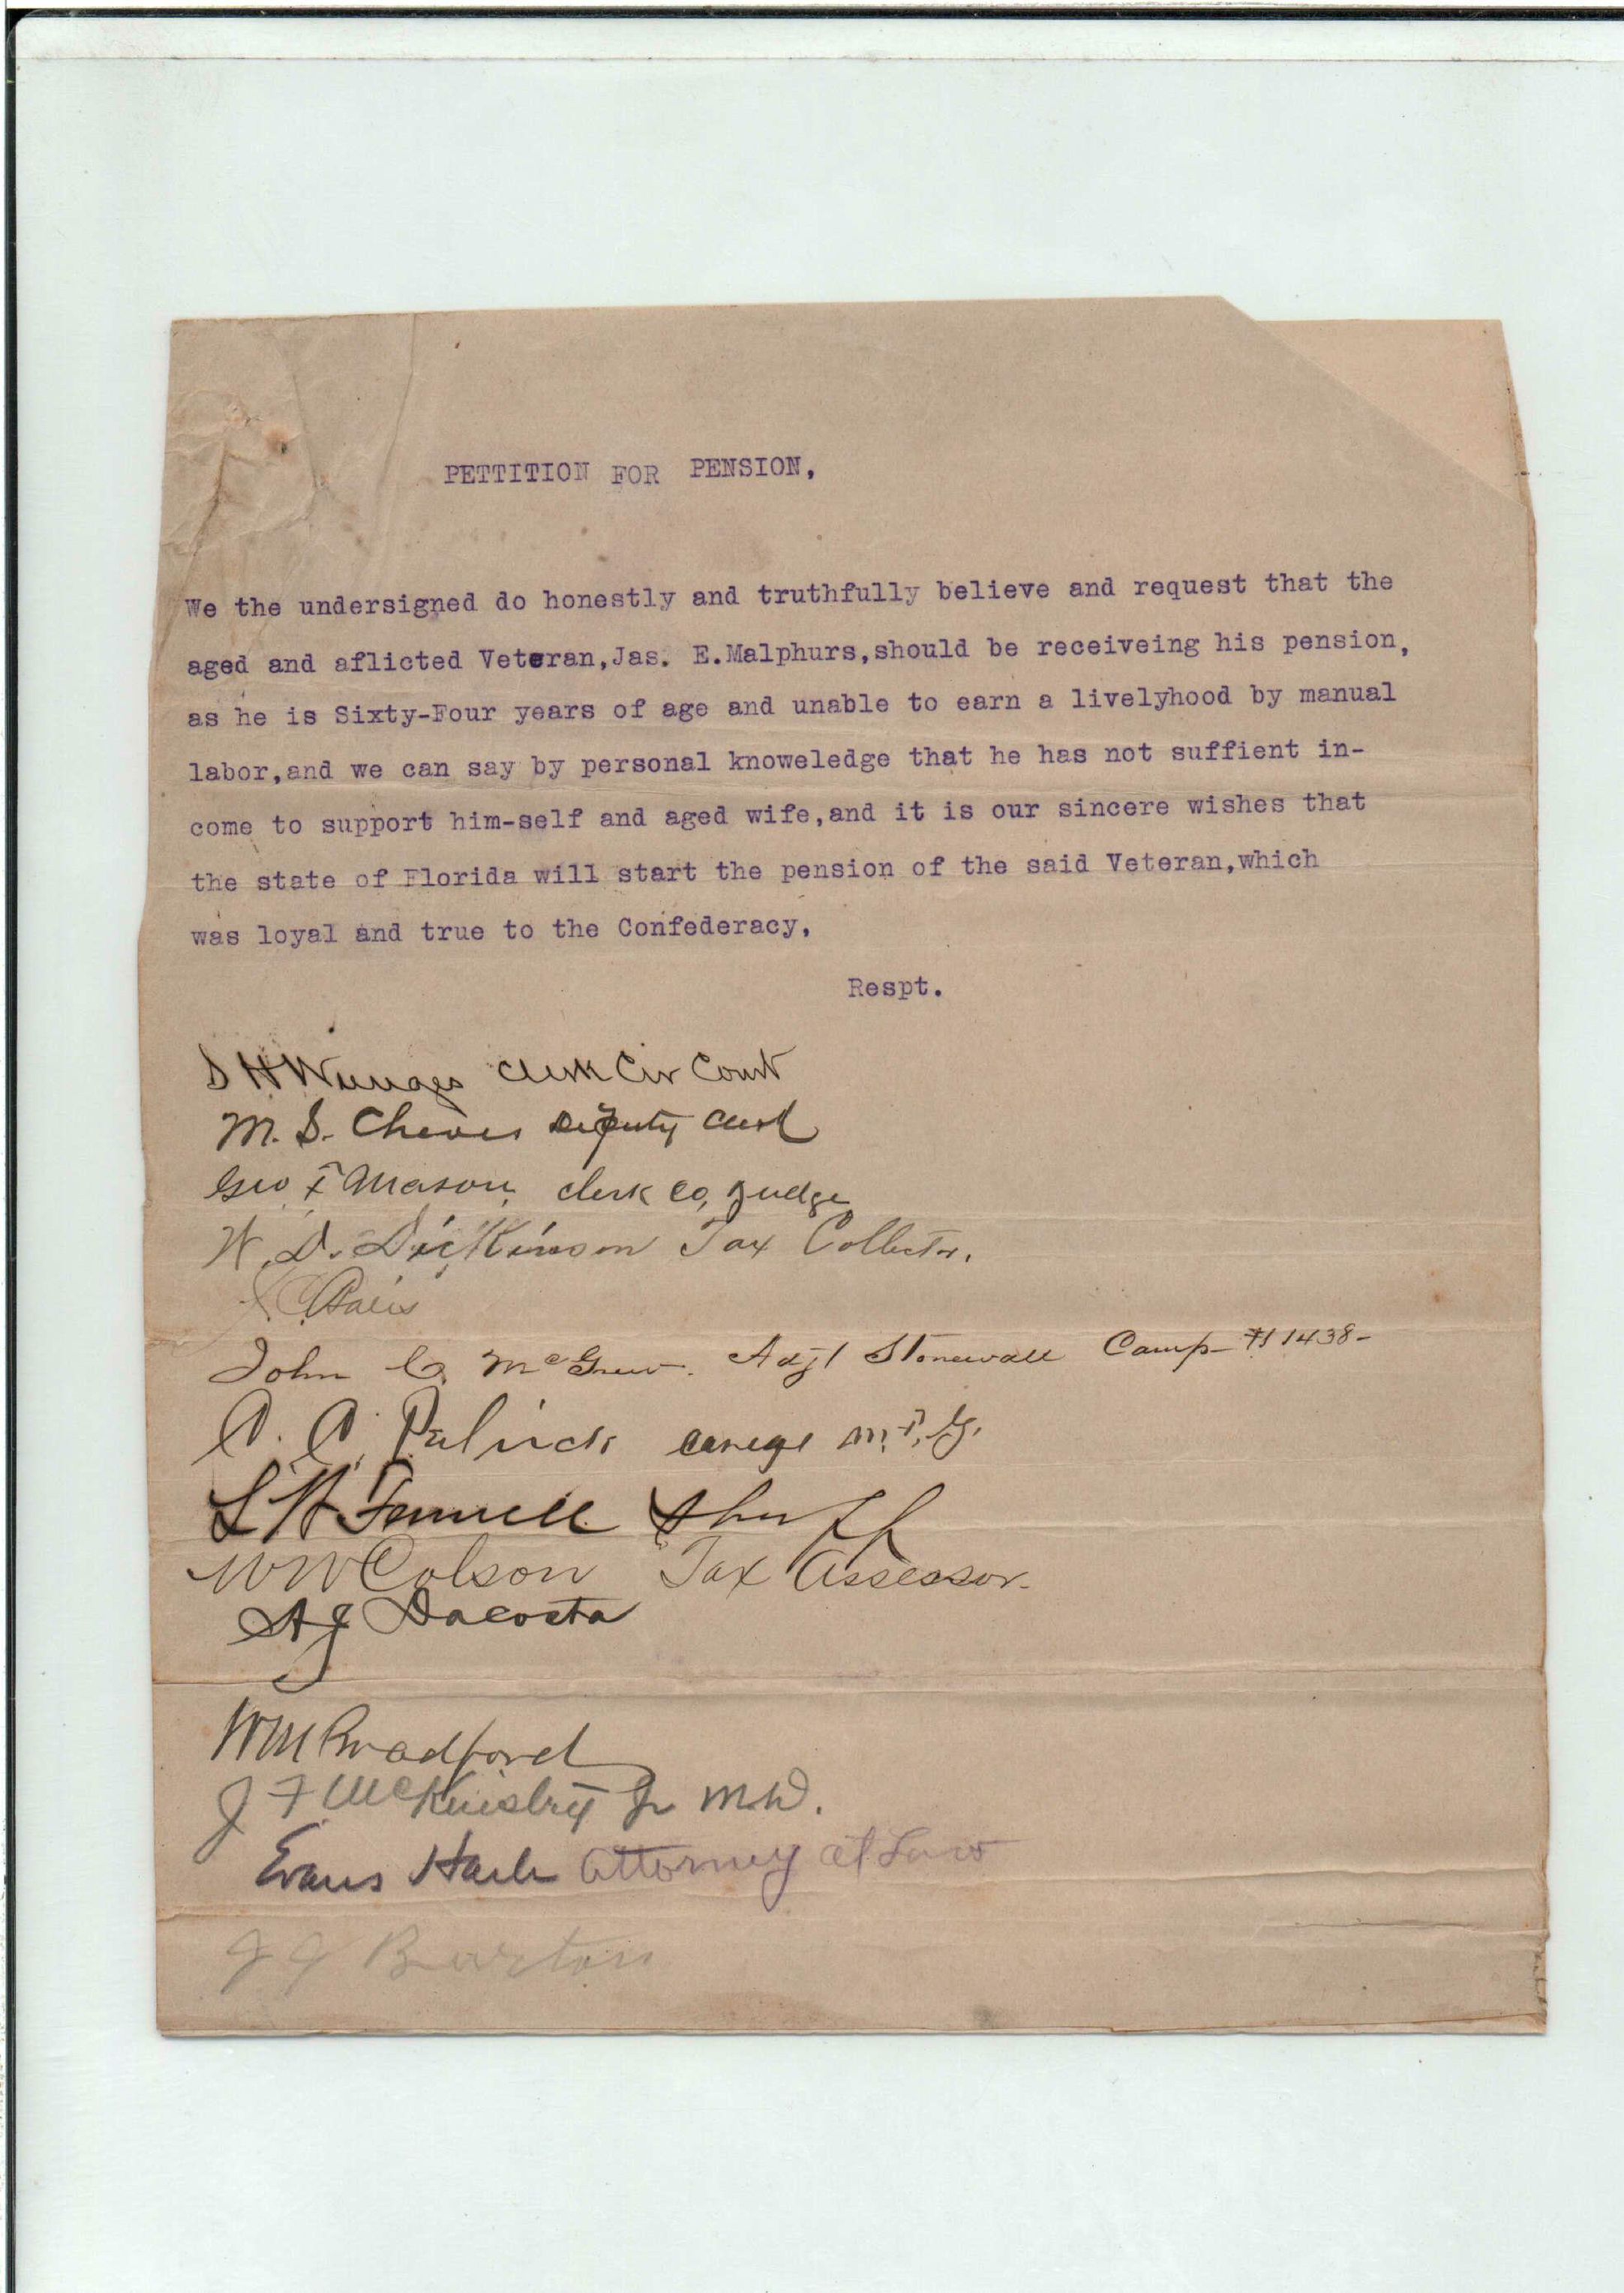 PETTITION FOR PENSION,
We the undersigned do honestly and truthfully believe and request that the
aged and aflicted Veteran,Jas. E.Malphurs,should be receiveing his pension,
as he is Sixty-Four years of age and unable to earn a livelyhood by manual
labor,and we can say by personal knoweledge that he has not suffient in-
come to support him-self and aged wife,and it is our sincere wishes that
the state of Florida will start the pension of the said Veteran,which
was loyal and true to the Confederacy,
Respt.
S H Wienges Clerk Cir Court
M. S. Cheves Deputy Clerk
Geo F Mason, clerk Co, Judge
W. D. Dickinson Tax Collector.
John C. McGrew. Adjt Stonewall Camp- #1438-
L W Fennell Sheriff
WW Colson Tax Assessor.
A J Dacosta
WM Bradford
J F McKinstry Jr M.D.
Evans Haile Attorney at Law
J J Barton